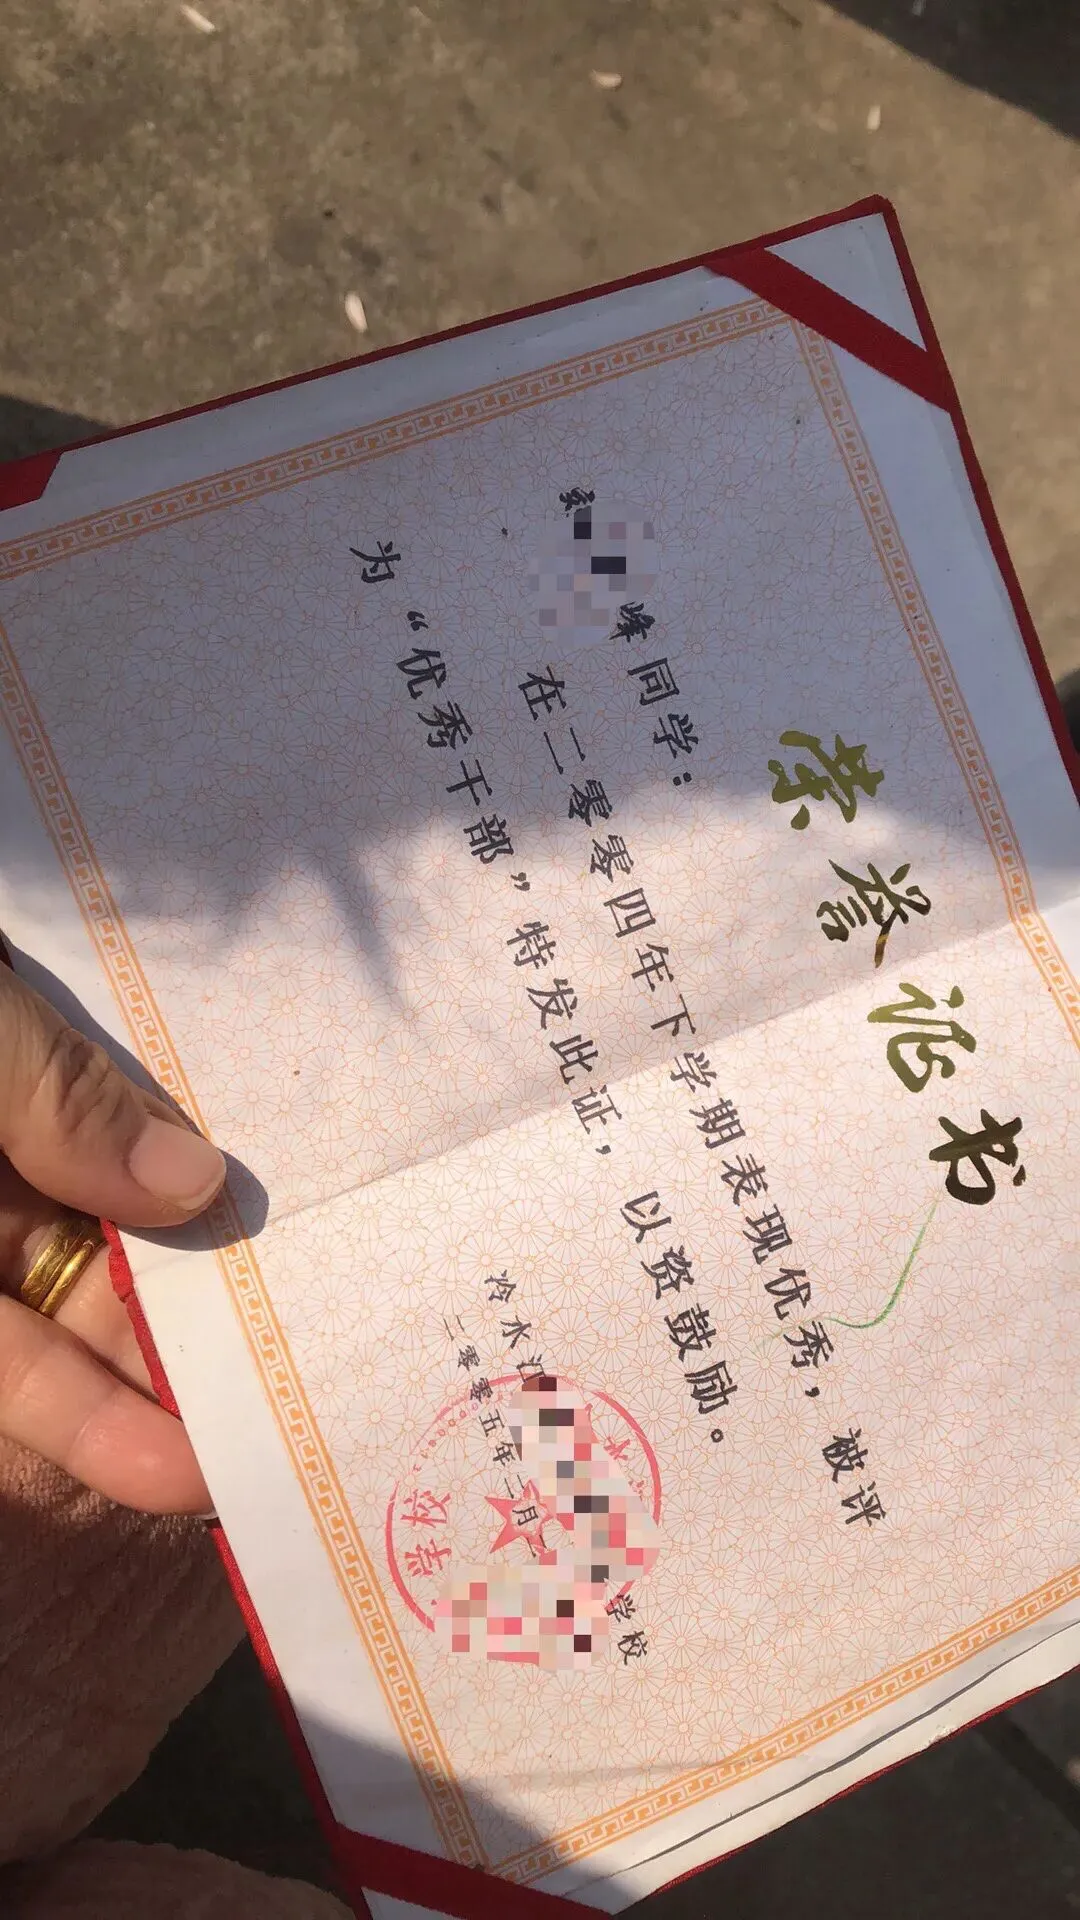 荣誉证书
峰同学：
在二零零四年下学期表现优秀，被评
为“优秀干部”特发此证，以资鼓励。
冷水江
学校
二零零五年二月
学校